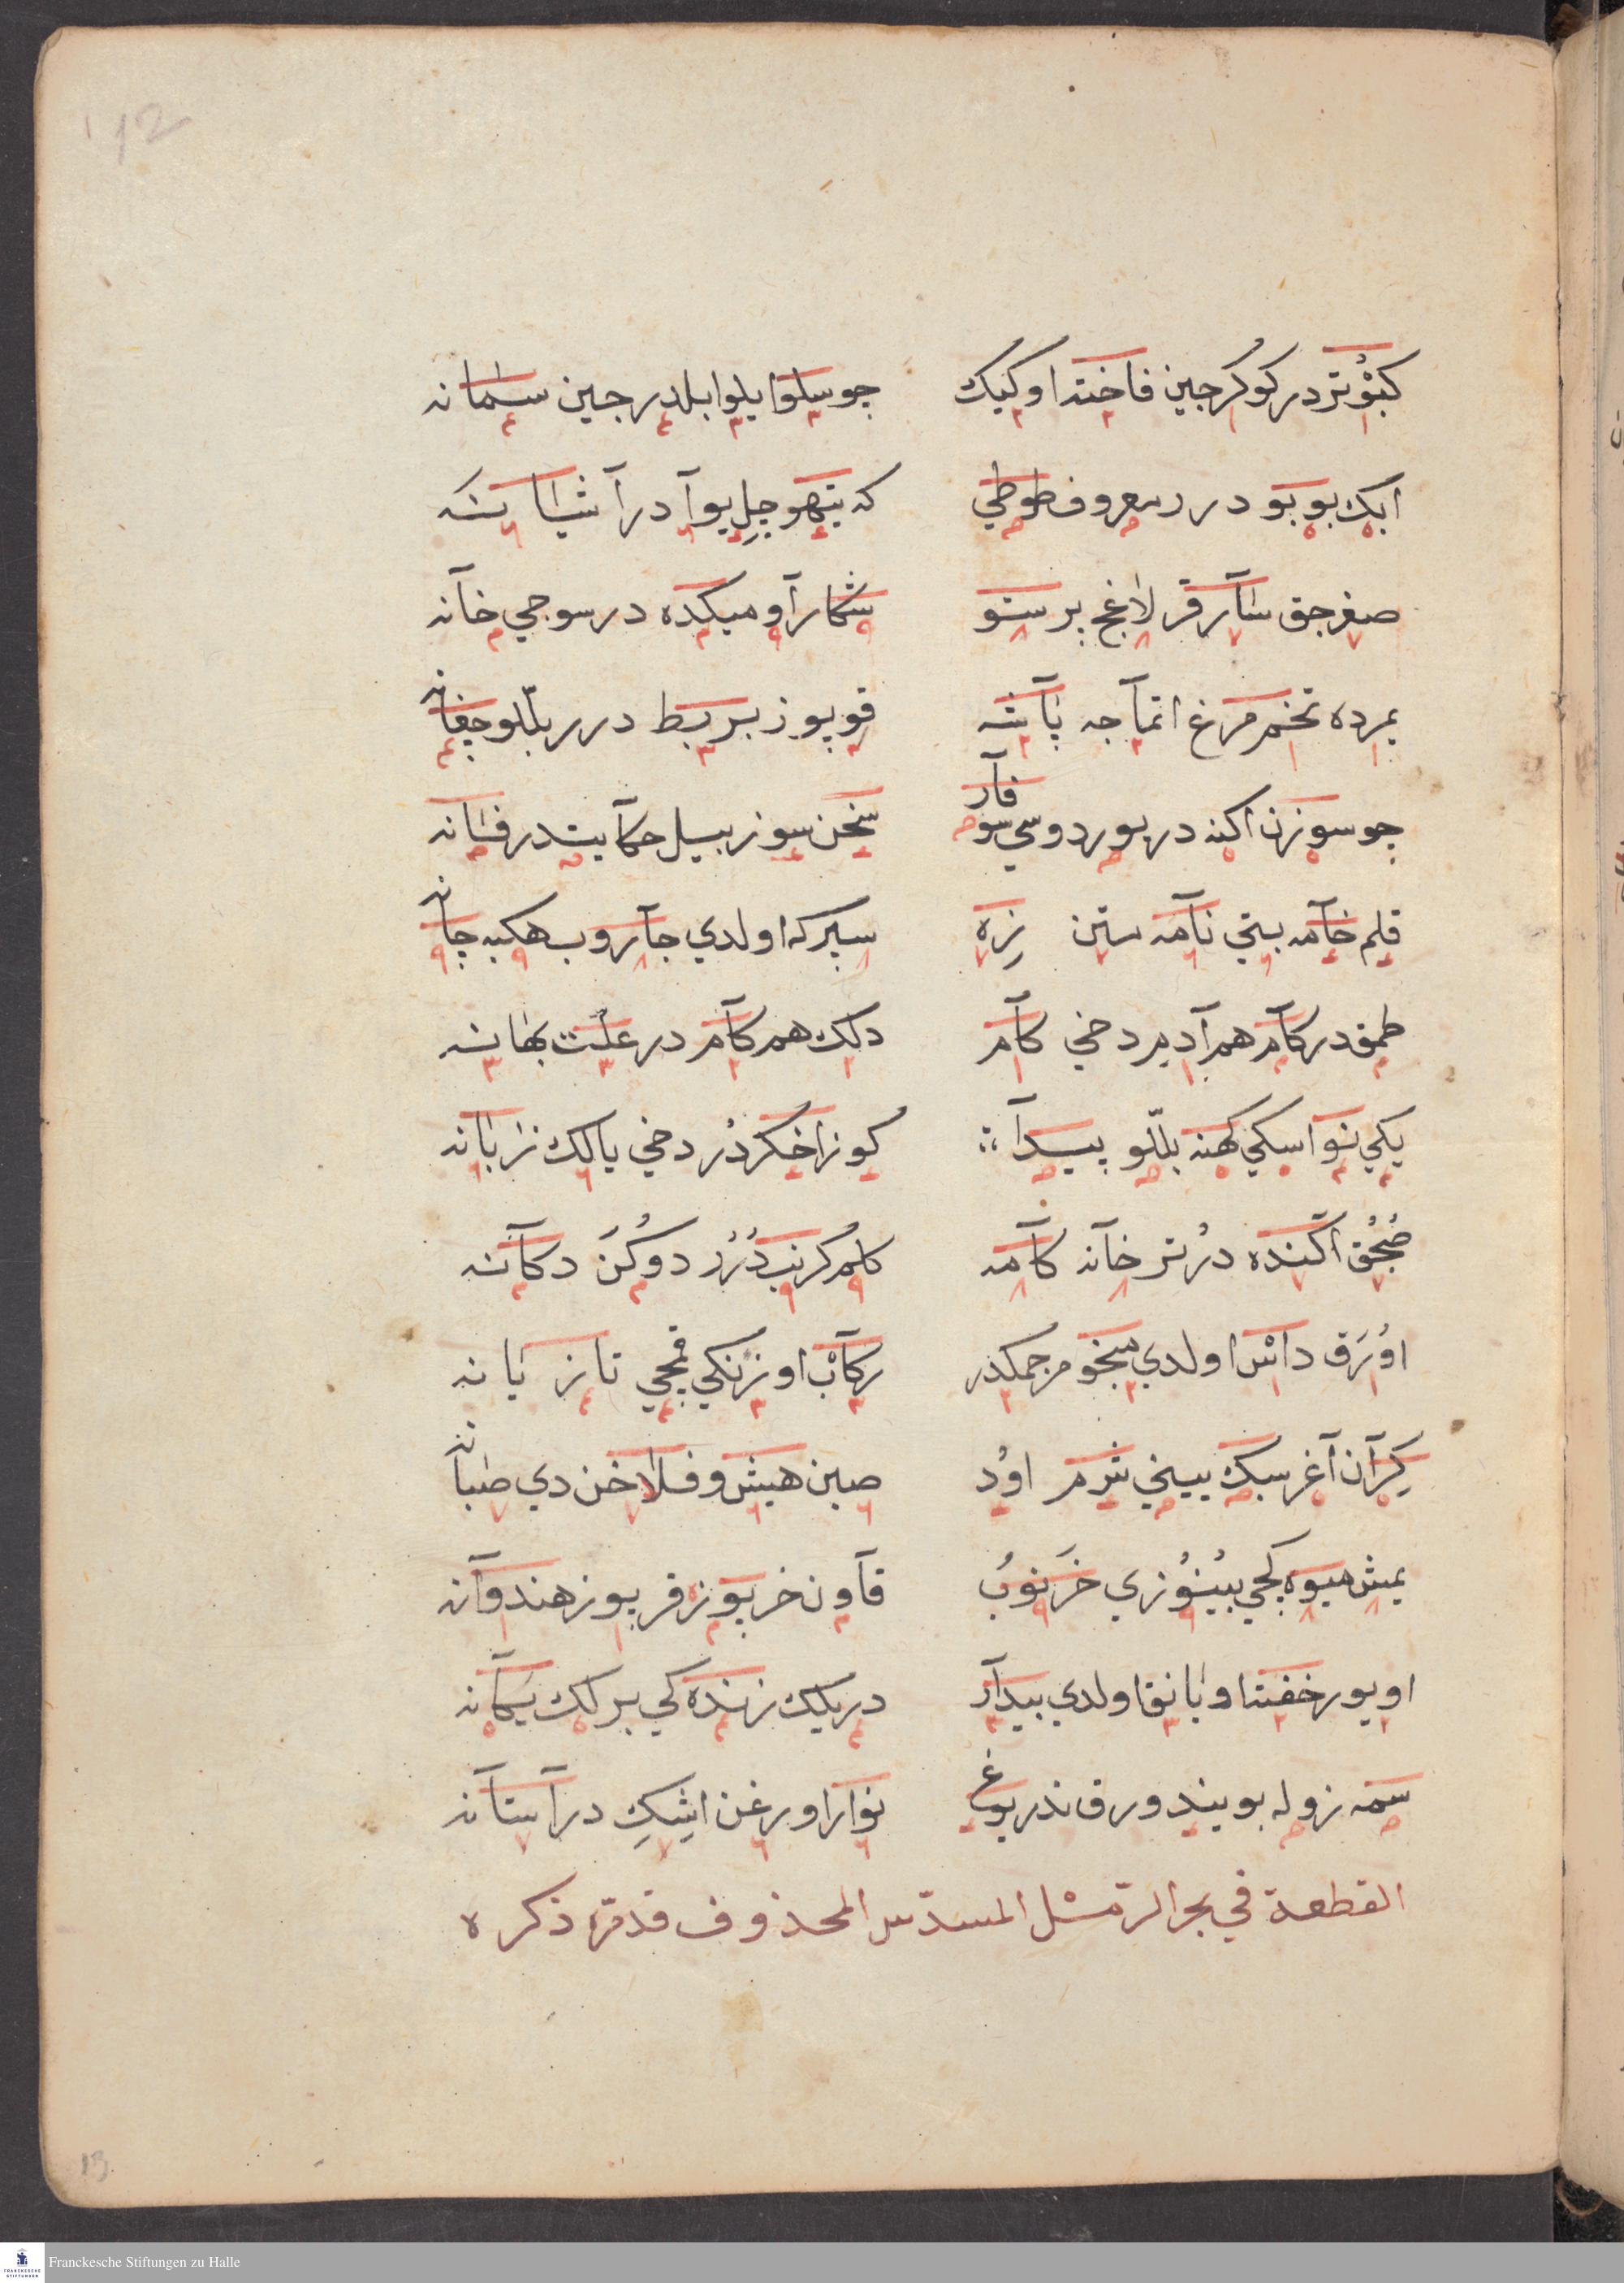 12
كبوتر در كوكرجين فاخته اوكيك چو سلوا يلوا بلدرجين سمانه
ابك بوبو در معروف طوطي كه تيهو چل يوآدر آشيانه
صغرجق سآر قرلاغج پرستو شمار آو ميكده در سوجي خآنه
يمرده تخم مرغ اتمآجه بآشه قوپوز بربط در بللو چغانه
چو سوزن اكنه در يوردوسي سوفآر سخن سوز بيل حكآيتدر فسانه
قلم خآمه بتي نآمه زره سپركه اولدي جآروب هكبه جآنه
طمق در كآم هم آديم دخي كآم دلك هم كآم در علت بهانه
يكي نو اسكي كهنه بللو پيدآ كوز اخكر در دخي يالك زبانه
صجق آكنده در ترخآنه كآمه كلم كرنب در دوكن دكآنه
اورق داس اولدي ميخوم جمكدر ركآب اوزنكي قمچي تازيانه
كرآن آغر سبك يينجي شرم اود صپن هيش و فلاخن دي صپانه
يمش ميوه كچي بينوزي خرنوب قآون خربوزه قربوز هندوآنه
اويور خفته اويانق اولدي بيدآر ديريلك زنده كي برلك يكآنه
سمه زوله بويندورق ندر يوغ نوار اورغن اشك در آستآنه
القطعة في بحر الرمل المسدس المحذوف قد مر ذكره
13
Franckesche Stiftungen zu Halle